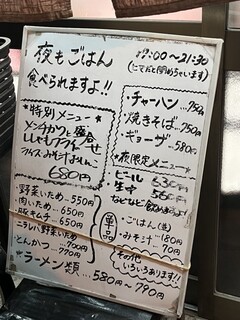 夜もごはん
食べられますよ!!
17:00〜21:30
★特別メニュー★
メンチカツと盛合
ししゃもフライ
ライス みそ汁 おしんこ
680円
・チャーハン…750円
・焼きそば…750円
・ギョーザ…580円
★夜限定メニュー★
ビール 630円
生中 560円
・野菜いため…550円
・肉いため…650円
・豚キムチ…650円
・ニラレバ野菜いため
…700円
・とんかつ…770円
単品
・ごはん(並)
・みそ汁…180円
70円
その他
いろいろあります!!
★ラーメン類…580円〜790円